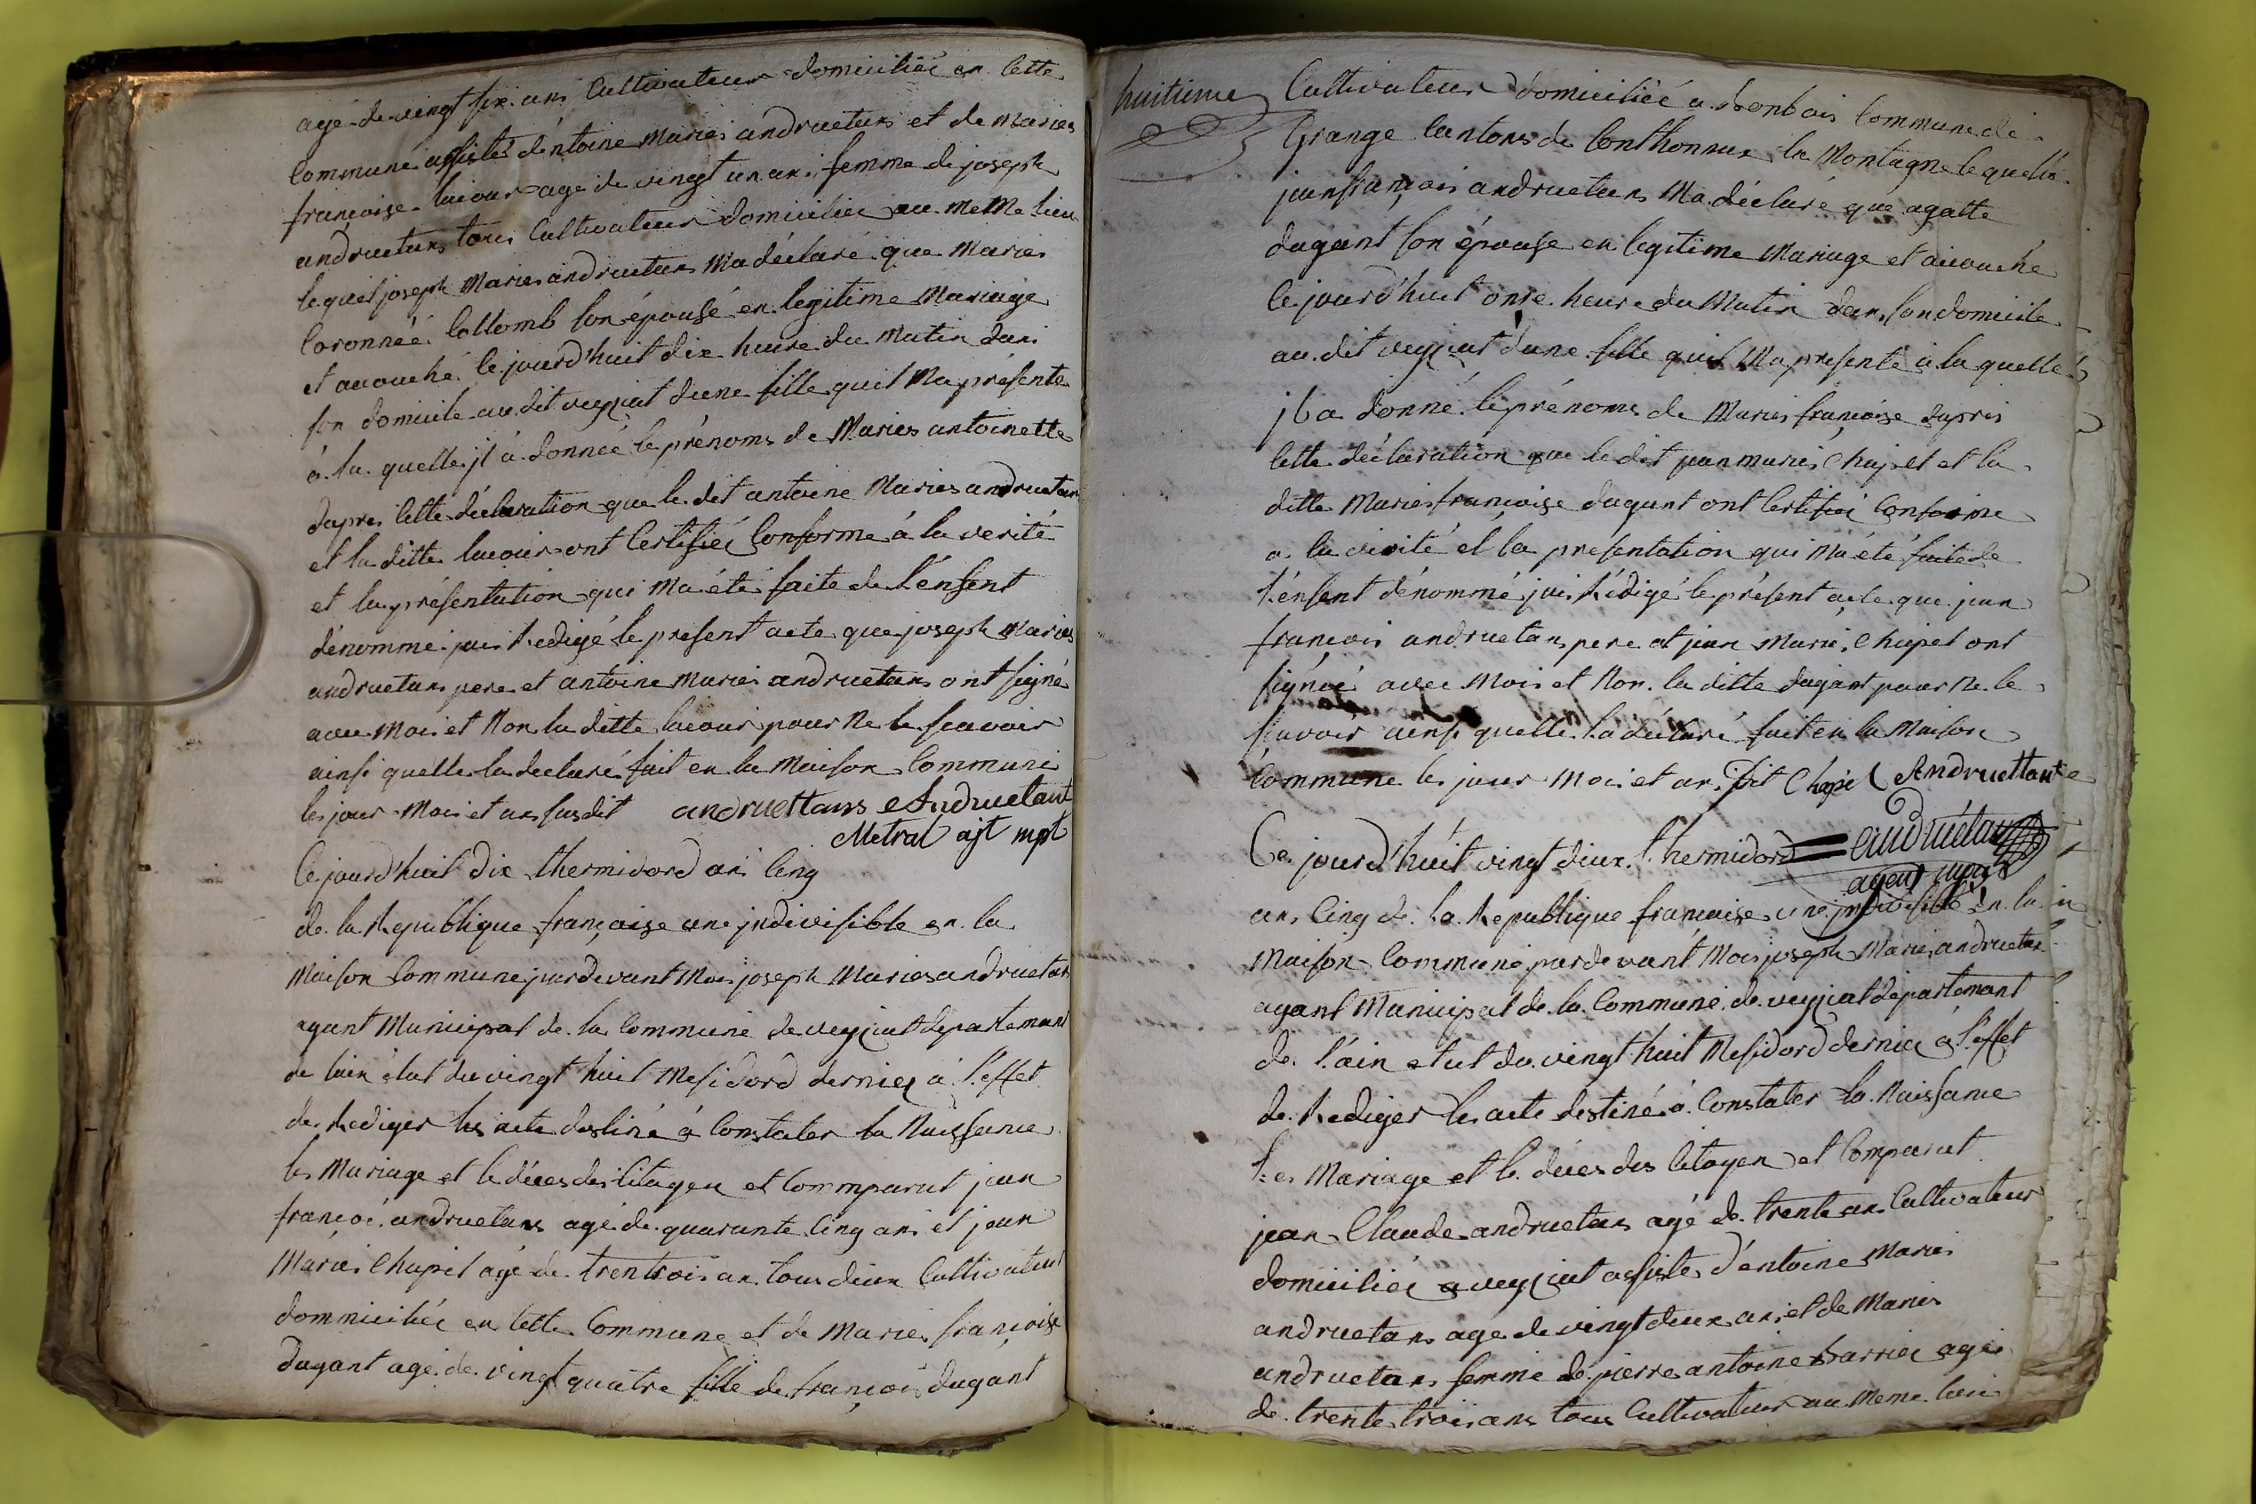 agé de vingt six ans Cultivateur domicilié en Cette
Commune assisté d'entoine Maries andruetans et de Maries
françoise lacour agé de vingt un ans femme de joseph
andruetans tous Cultivateur domicilié au meme lieu
le quel joseph Maries andruetans Ma déclaré que Maries
Collomb son épouse en legitime Mariage
et accouché le jourd'huit dix heure du Matin dans
son domicile au dit veyziat d'une fille quil Ma présenté
à la quelle jl à donnée le prénoms de Maries antoinette
dapres Cette déclaration que le dit antoine Maries andruetans
et la ditte lacour ont Certifiéz Conforme à la verité
et la présentation qui Ma été faite de l'énfent
dénommé jai Redigé le present acte que joseph Maries
andruetans pere et antoine Maries andruetans ont signé
avec Moi et Non la ditte lacour pour Ne le scavoir
ainsi quelle la declaré fait en la Maison Commune
les jour Moi et an susdit andruettans Andruetant
Metral ajt mpl
Ce jourd'huit dix thermidord an Cinq
de la Republique française une jndivisible en la
Maison Commune pardevant Moi joseph Maries andruetans
agant Municipal de la Commune de veyziat departemant
de l'ain élut du vingt huit Mesidord dernier à l'éffet
de Rediger les acte destiné à Constater la Naissance
les Mariage et le déces des Citoyen et Commparut jean
françoi andruetans agé de quarante Cinq ans et jean
Maries Chapel agé de trentrois an tous deux Cultivateur
dommicilié en Cette Commune et de Maries françoise
dugant agé de vingt quatre fille de françois dugant
huitieme
Cultivateur domiciliéé a Commune de
Grange Cantons de Conthonnux la Montagne lequelle
jeanfrançois andruetans Ma déclaré que agatte
dugant son épouse en legitime Mariage et accouché
le jourd'huit onze heure du Matin dans son domicile
au dit veyziat d'une fille quil Ma presenté à la quelle
jl a donné le prénoms de Maries françoise dapres
Cette déclaration que le dit jean maries Chapel et la
ditte Maries françoise dugant ont Certifiéz Conforme
a la vérité et la présentation qui Ma été faite de
l'énfent dénommé jai Rédigé le présent acte que jean
françois andruetans pere et jean Maries Chapel ont
signéé avec Moi et Non la ditte dugant pour Ne le
scavoir ainsi quelle la déclaré fait en la Maison
Commune les jour Moi et an dit Chapel Andruettant
Ce jourd'huit vingt deux thermidord andruétans
agent mpal
an Cinq de la Republique françoise une jndivisible en la
Maison Commune pardevant Moi joseph Maries andruetans
agant Municipal de la Commune de veyziat departemant
de l'ain elut du vingt huit Mesidord dernier à l'éffet
de Rediger les acte destiné à Constater la Naissance
les Mariage et le déces des Citoyen et Comparut
jean Claude andruetans agé de trente ans Cultivateur
domiciliéz a veyziat assisté d'entoine Maries
andruetans agé de vingt deux ans et de Maries
andruetans femme de pierre antoine agé
de trente trois ans tous Cultivateur au meme lieu